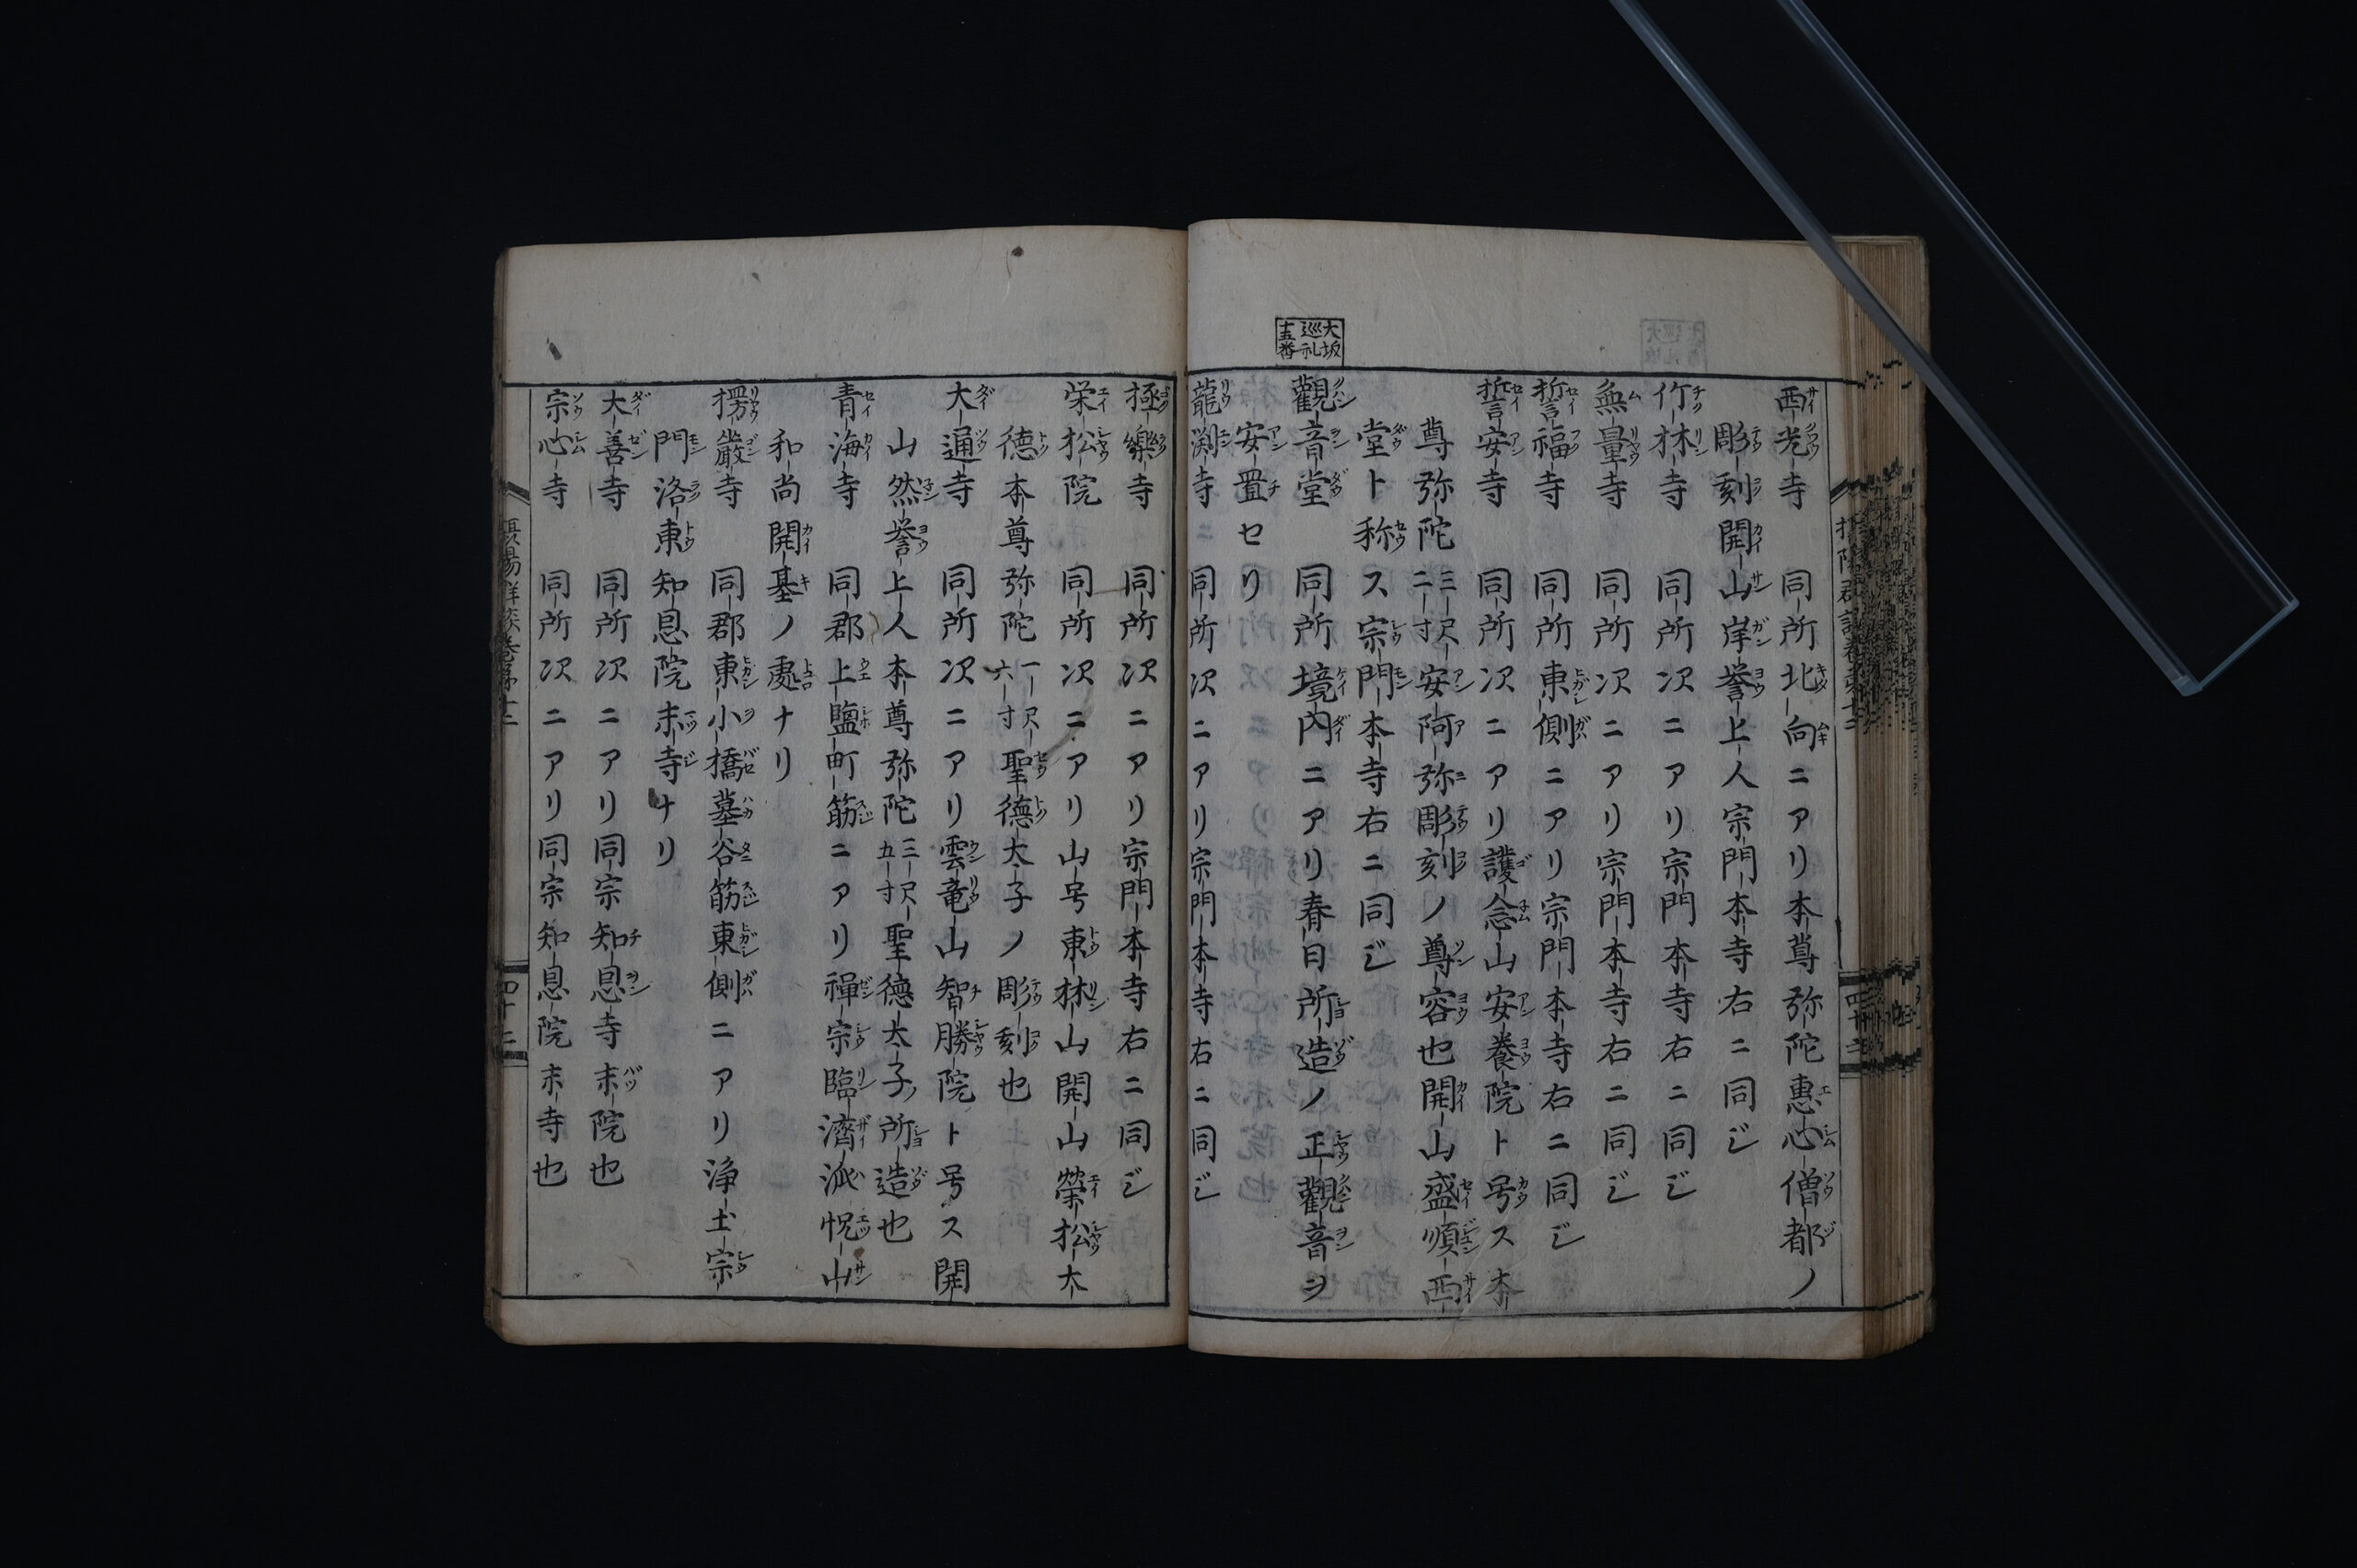 西光寺　同所北向ニアリ本尊弥陀惠心僧都ノ
彫刻開山岸誉上人宗門本寺右ニ同ジ
竹林寺　同所次ニアリ宗門本寺右ニ同ジ
無量寺　同所次ニアリ宗門本寺右ニ同ジ
誓福寺　同所東側ニアリ宗門本寺右ニ同ジ
誓安寺　同所次ニアリ護念山安養院ト号ス本
尊弥陀三尺二寸安阿弥彫刻ノ尊容也開山盛順西
堂ト称ス宗門本寺右ニ同ジ
大坂巡礼十五番
觀音堂　同所境内ニアリ春日所造ノ正觀音ヲ
安置セリ
龍渕寺　同所次ニアリ宗門本寺右ニ同ジ
極樂寺　同所次ニアリ宗門本寺右ニ同ジ
栄松院　同所次ニアリ山号東林山開山榮松大
德本尊弥陀一尺六寸聖德太子ノ彫刻也
大通寺　同所次ニアリ雲竜山智勝院ト号ス開
山然誉上人本尊弥陀三尺五寸聖德太子ノ所造也
青海寺　同郡上鹽町筋ニアリ禪宗臨濟派悦山
和尚開基ノ處ナリ
楞嚴寺　同郡東小橋墓谷筋東側ニアリ浄土宗
門洛東知恩院末寺ナリ
大善寺　同所次ニアリ同宗知恩寺末院也
宗心寺　同所次ニアリ同宗知恩院末寺也